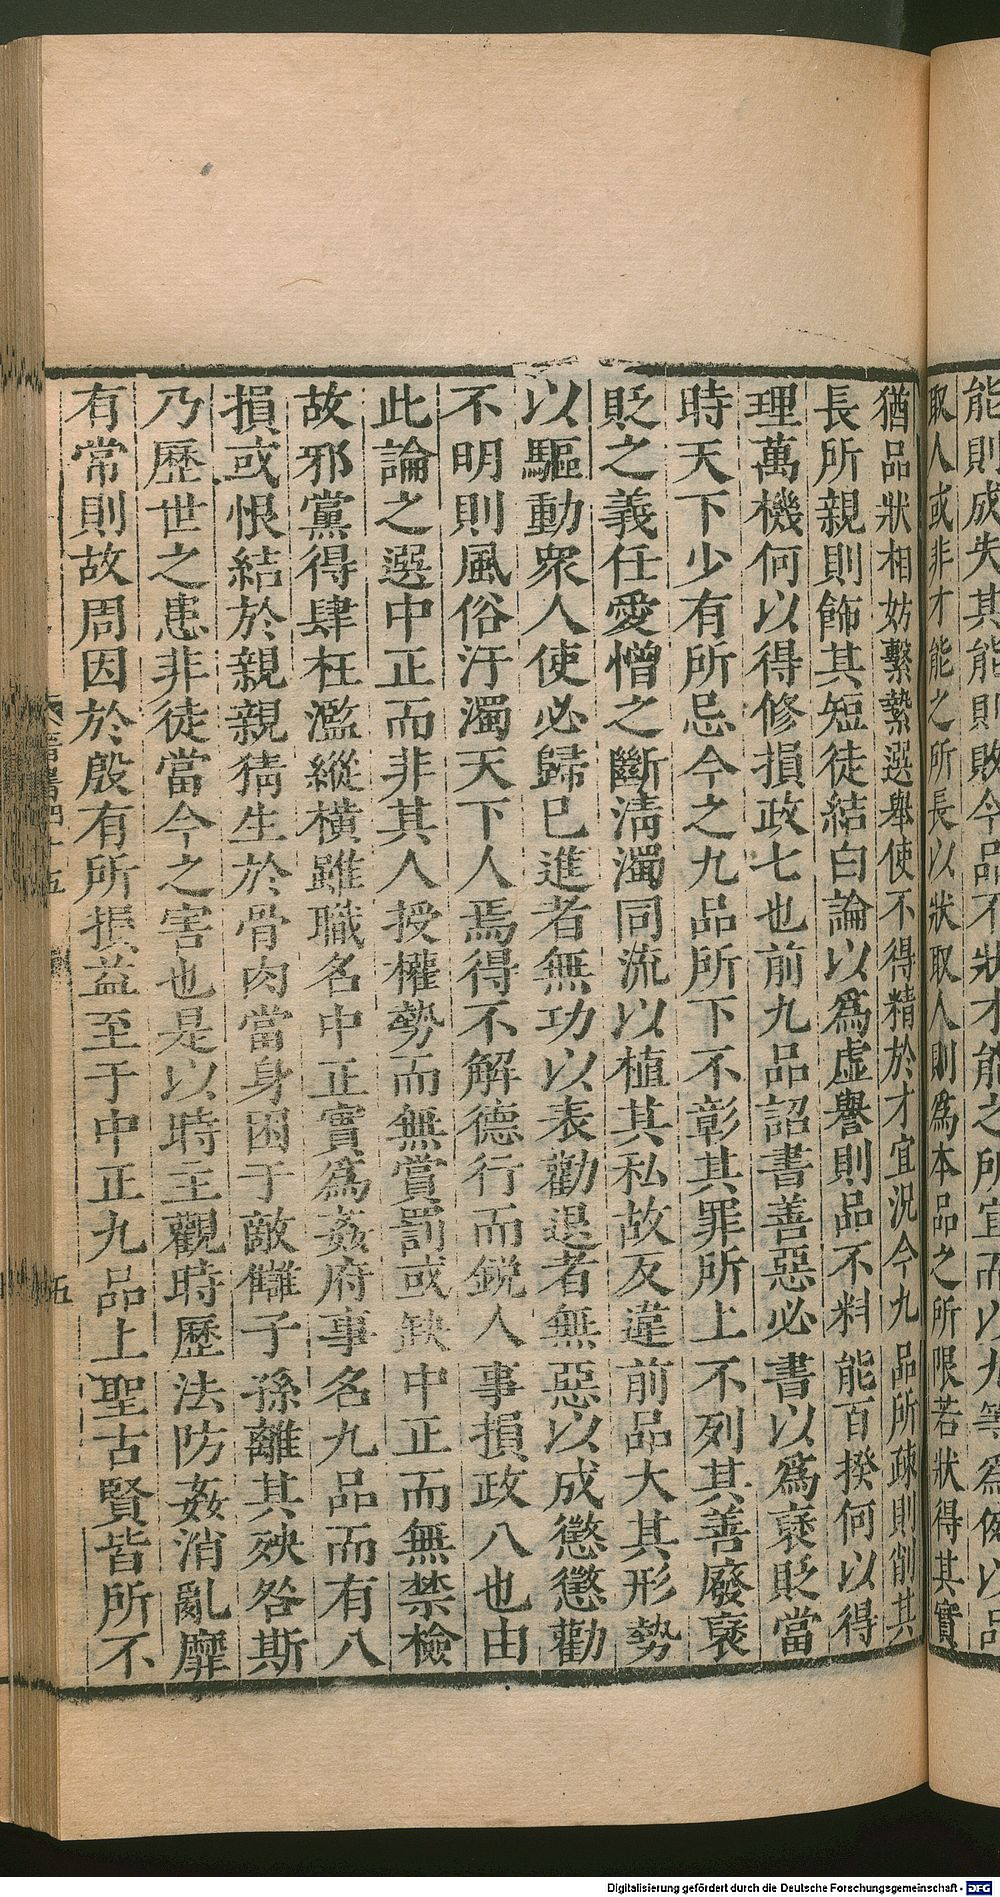 能則成失其能則敗今品不狀才能之所宜而以九等為例以品
取人或非才能之所長以狀取人則爲本品之所限若狀得其實
猶品狀相妨繫縶選舉使不得精於才宜況今九品所疎則削其
長所親則飾其短徒結白論以爲虛譽則品不料能百揆何以得
理萬機何以得修損政七也前九品詔書善惡必書以爲褒貶當
時天下少有所忌今之九品所下不彰其罪所上不列其善廢褒
貶之義任愛憎之斷淸濁同流以植其私故反違前品大其形勢
以驅動衆人使必歸已進者無功以表勸退者無惡以成懲懲勸
不明則風俗汙濁天下人焉得不解德行而鋭人事損政八也由
此論之選中正而非其人授權勢而無賞罰或缺中正而無禁檢
故邪黨得肆枉濫縱橫雖職名中正實爲姦府事名九品而有八
損或恨結於親親猜生於骨肉當身困于敵讎子孫離其殃咎斯
乃歷世之患非徒當今之害也是以時主觀時歷法防姦消亂靡
有常則故周因於殷有所損益至于中正九品上聖古賢皆所不
晉書四十五
五
Digitalisierung gefördert durch die Deutsche Forschungsgemeinschaft - DFG